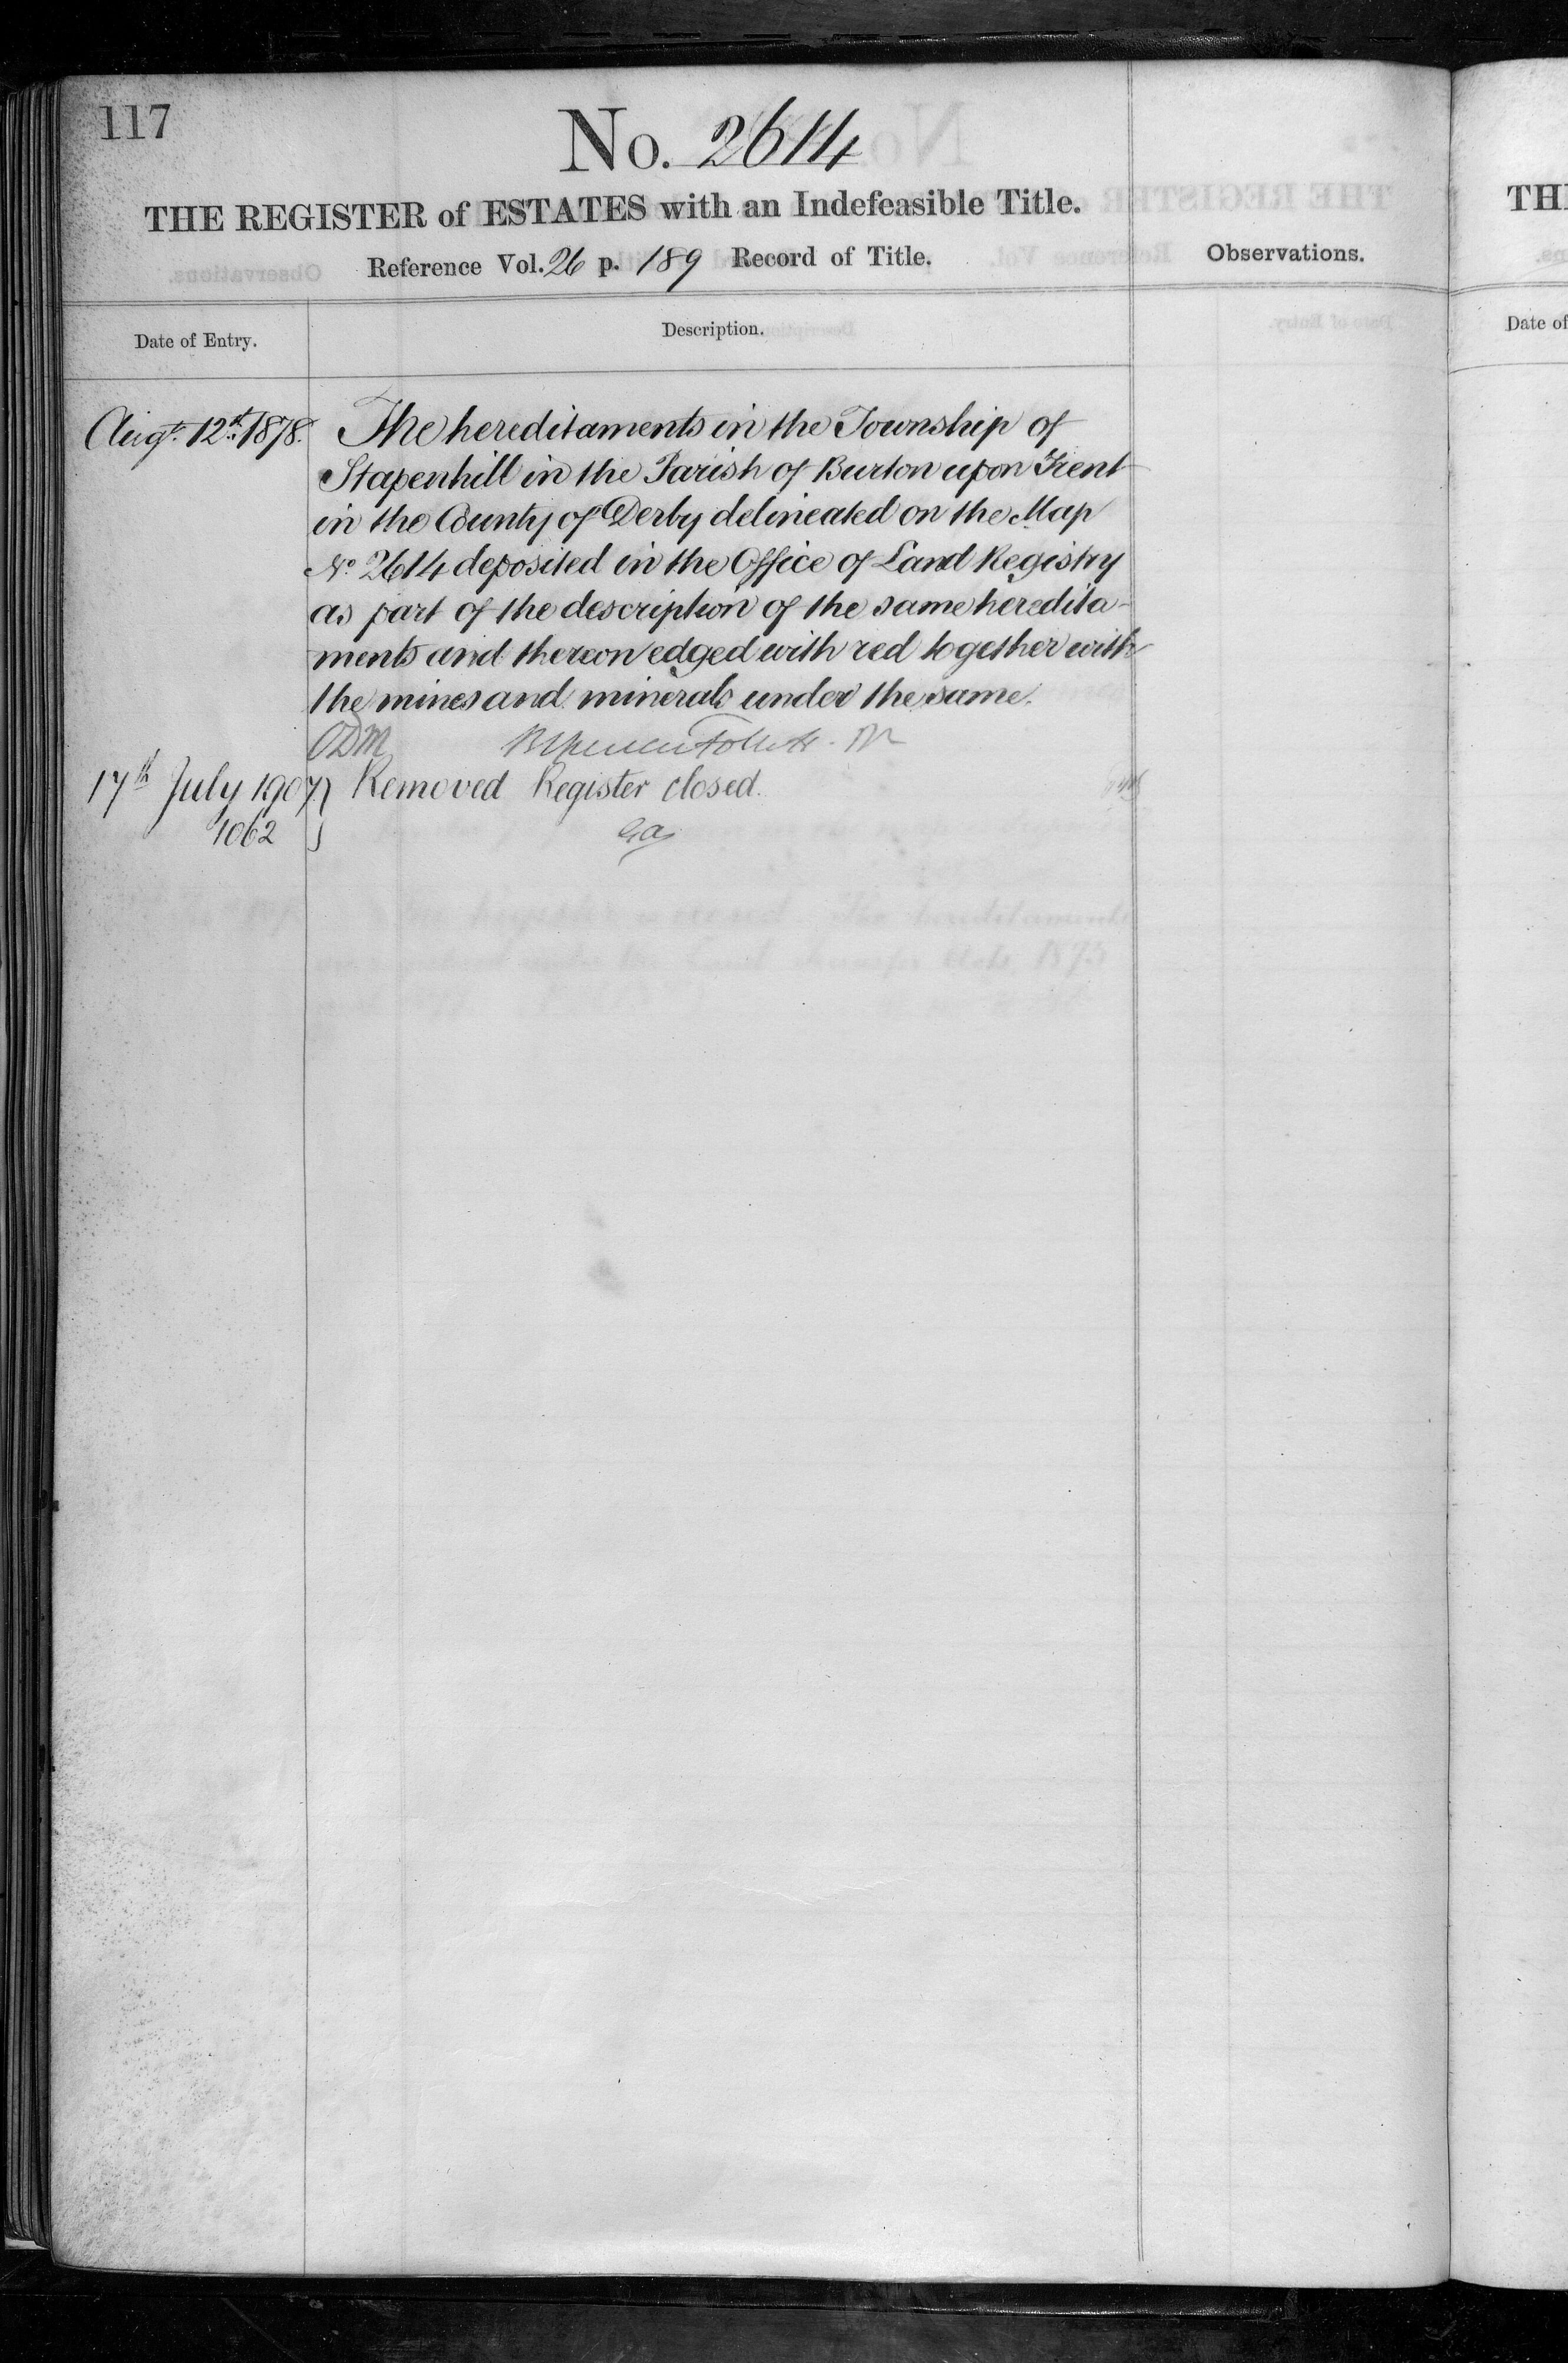 117
No. 2614
THE REGISTER of ESTATES with an Indefeasible Title.
Reference Vol. 26 p. 189 Record of Title.
Observations.
Date of Entry.
Description.
Augt. 12th. 1878.
The hereditaments in the Township of
Stapenhill in the Parish of Burton upon Trent
in the County of Derby delineated on the Map
No. 2614 deposited in the Office of Land Registry
as part of the description of the same heredita-
ments and thereon edged with red together with
the mines and minerals under the same.
ODM
17th July 1907 } Removed Register closed.
1062
TH
Date of